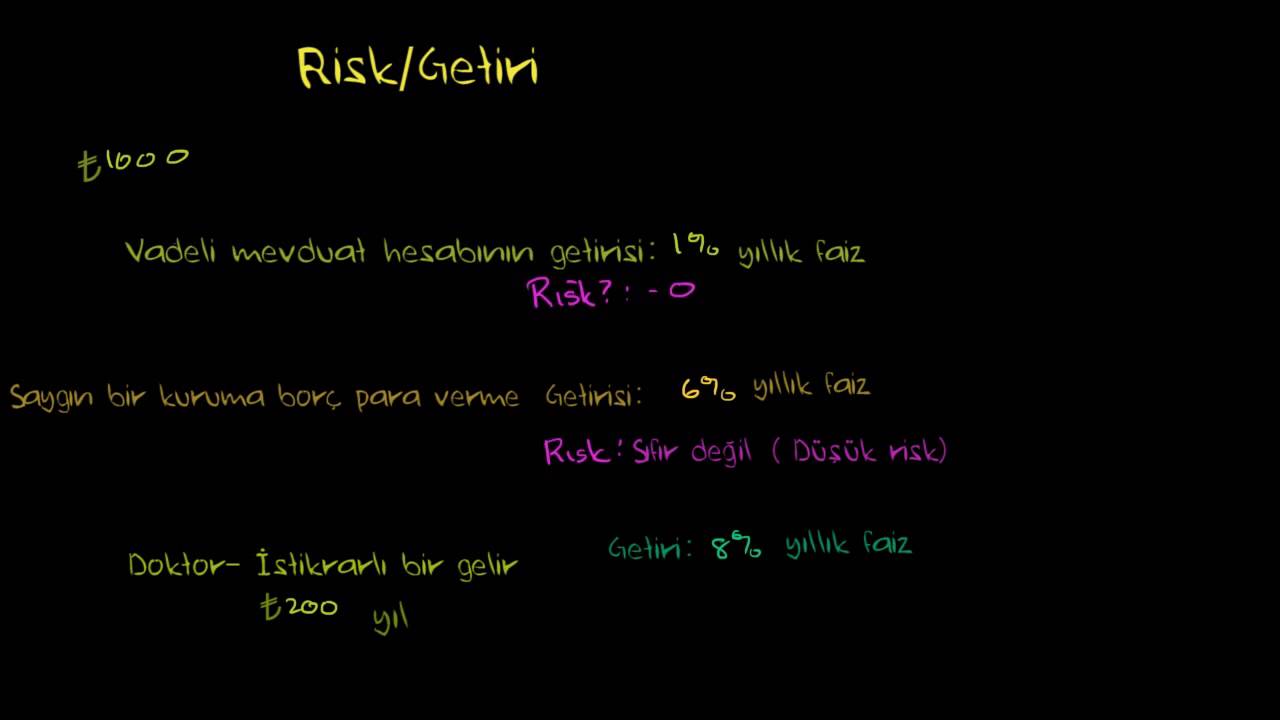 Risk/Getiri
₺1000
Vadeli mevduat hesabının getirisi: 1% yıllık faiz
Risk?: - 0
Saygın bir kuruma borç para verme Getirisi: 6% yıllık faiz
Risk: Sıfır değil ( Düşük risk)
Doktor- İstikrarlı bir gelir Getiri: 8% yıllık faiz
₺200 yıl